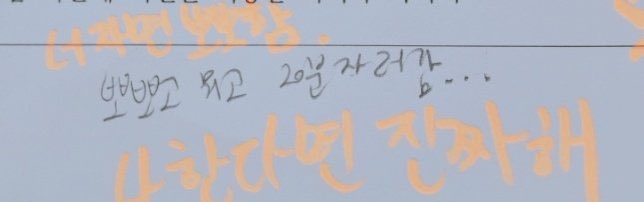 너 자면 뽀뽀함.
뽀뽀하고 20분 자러감...
나 한다면 진짜해